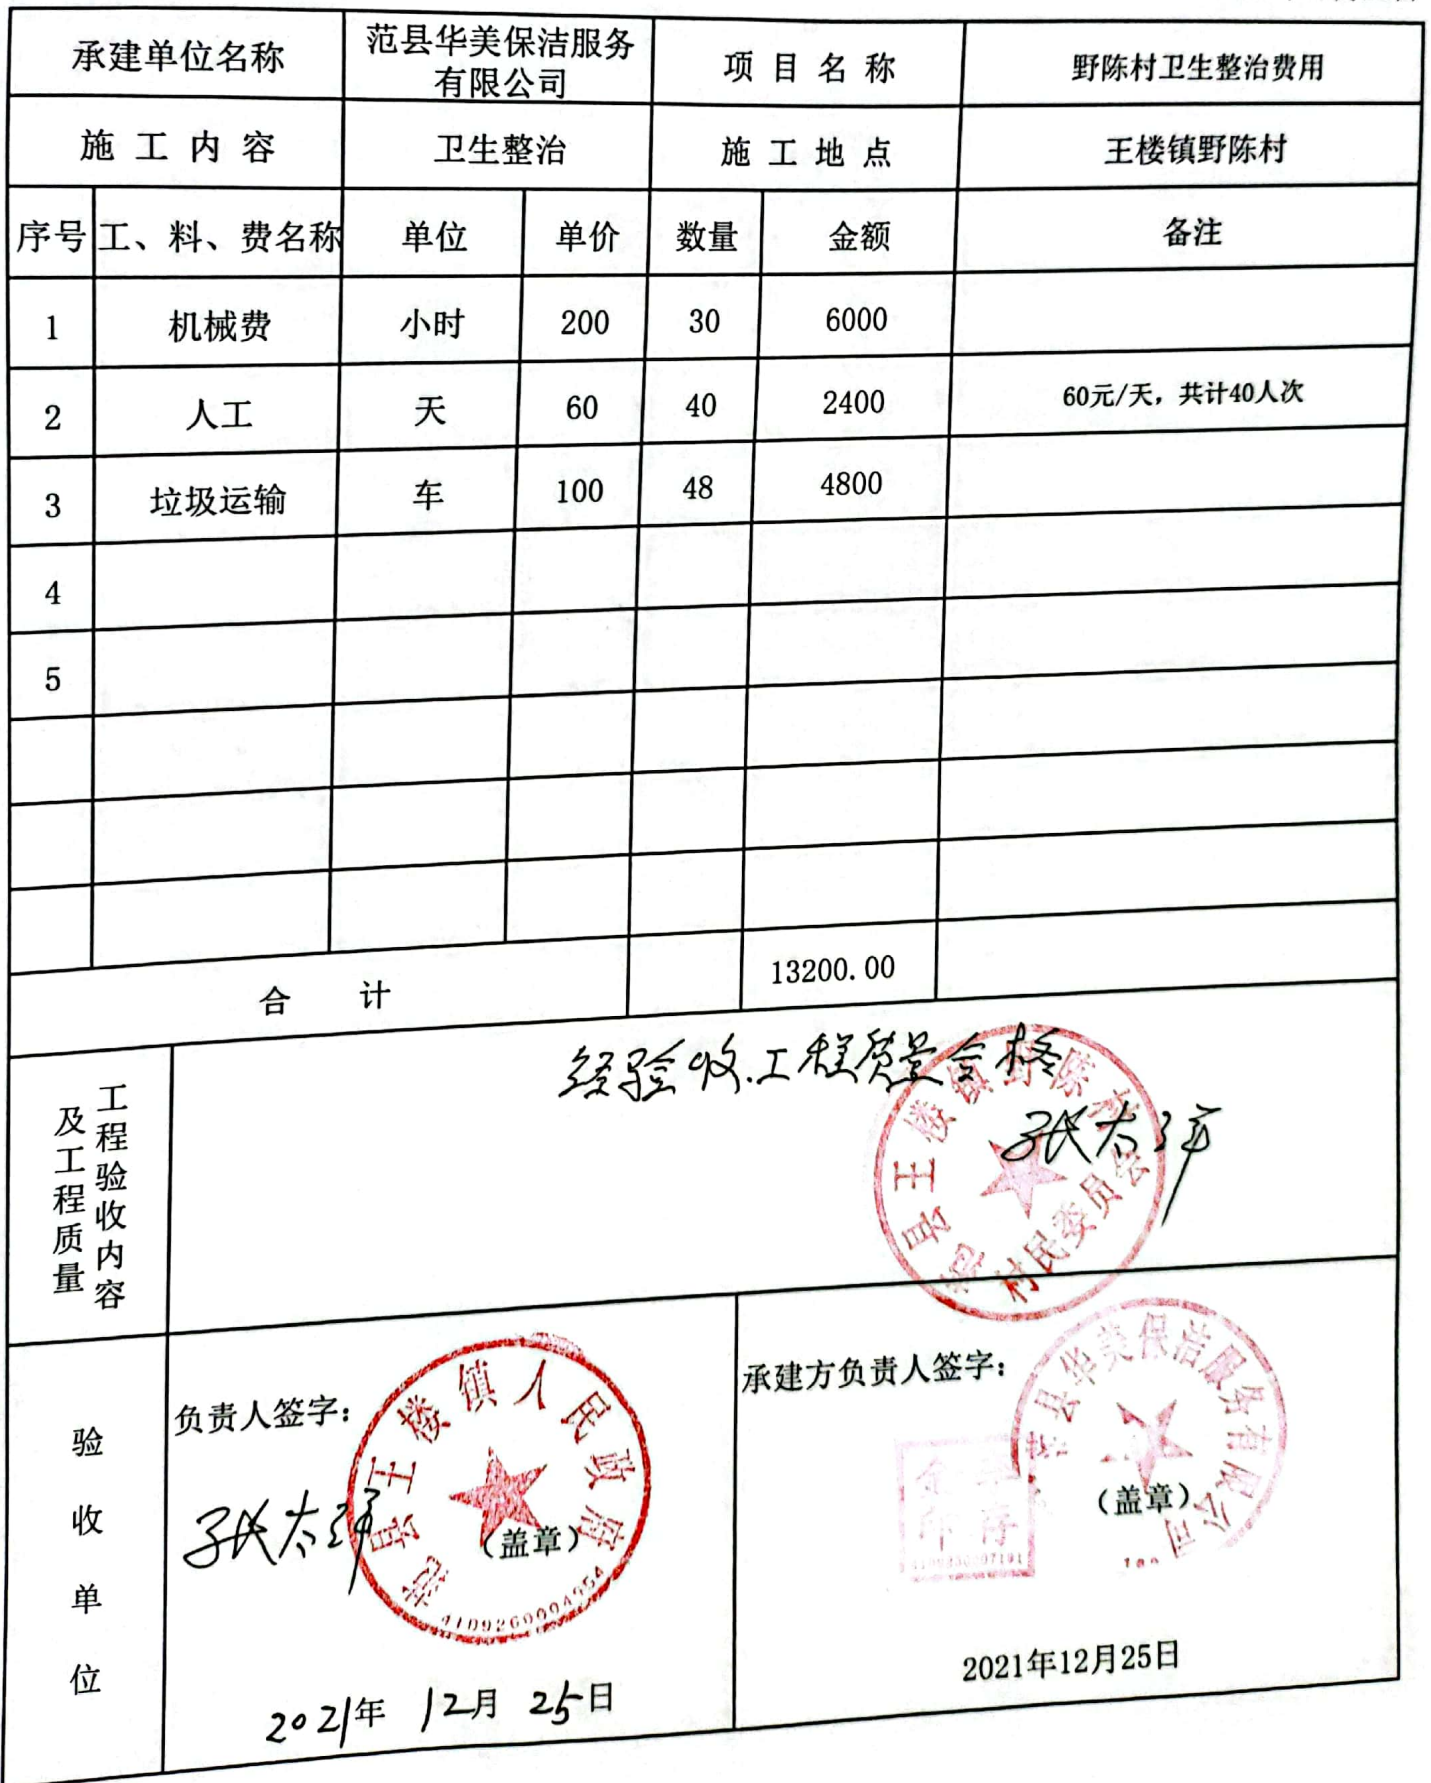 承建单位名称 范县华美保洁服务有限公司 项目名称 野陈村卫生整治费用
施工内容 卫生整治 施工地点 王楼镇野陈村
序号 工、料、费名称 单位 单价 数量 金额 备注
1 机械费 小时 200 30 6000
2 人工 天 60 40 2400 60元/天，共计40人次
3 垃圾运输 车 100 48 4800
4
5
合计 13200.00
工程验收内容及工程质量
经验收.工程质量合格
范县王楼镇野陈村
村民委员会
验收单位
负责人签字：
范县王楼镇人民政府
（盖章）
4109260004954
2021年 12月 25日
承建方负责人签字：
范县华美保洁服务有限公司
（盖章）
2021年12月25日